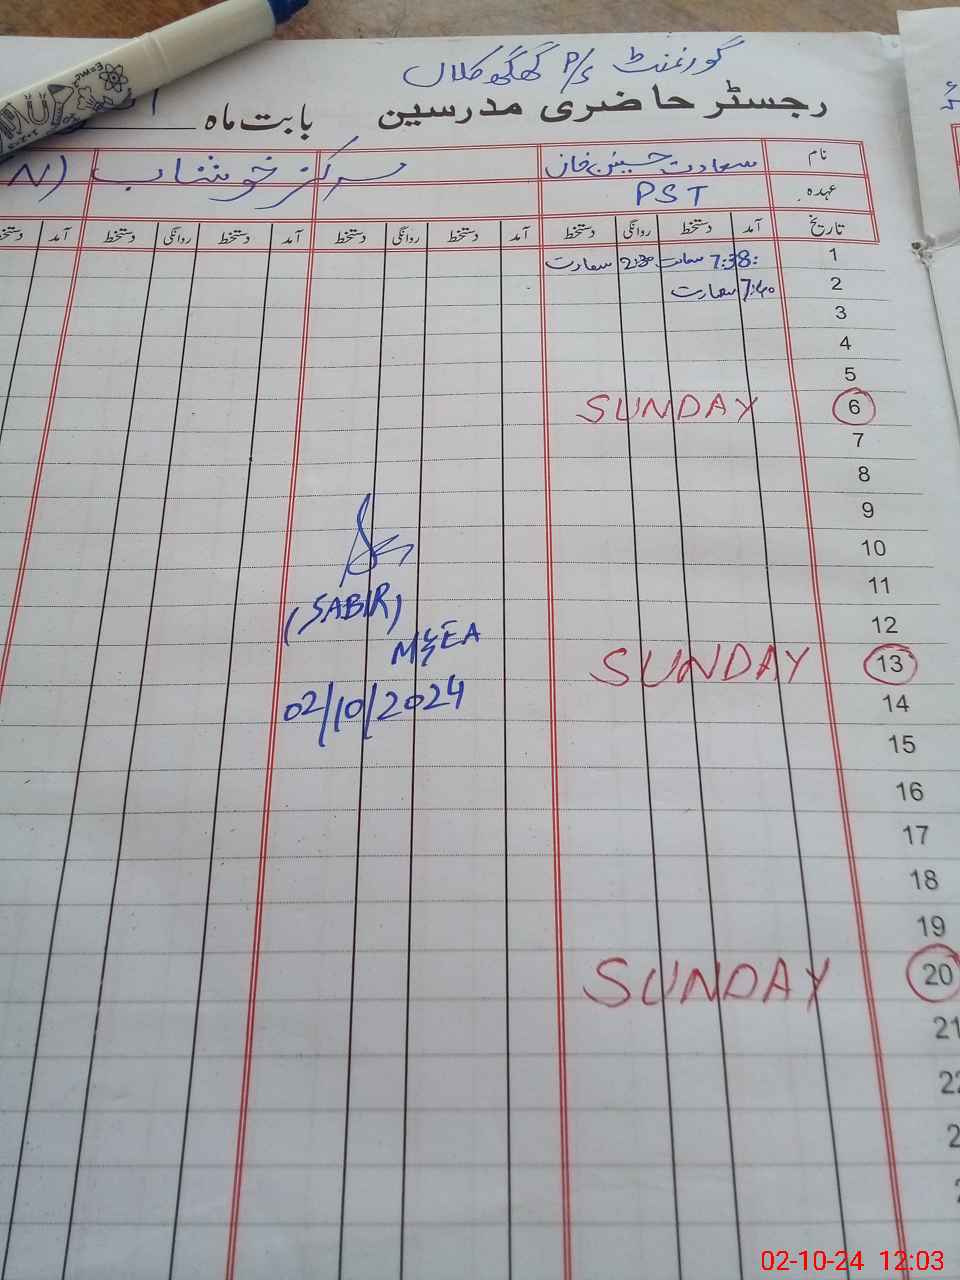 گورنمنٹ P/S گھگھ کلاں
رجسٹر حاضری مدرسین بابت ماہ
نام سعادت حسین خان مرکز خوشاب (N
عہدہ PST
تاریخ آمد دستخط روانگی دستخط آمد دستخط روانگی دستخط آمد دستخط روانگی دستخط آمد دستخط
1 7:38: سعادت 2:30 سعادت
2 7:40 سعادت
3
4
5
6 SUNDAY
7
8
9
10
11
12
13 SUNDAY
14
15
16
17
18
19
20 SUNDAY
21
(SABIR)
MEA
02/10/2024
02-10-24 12:03